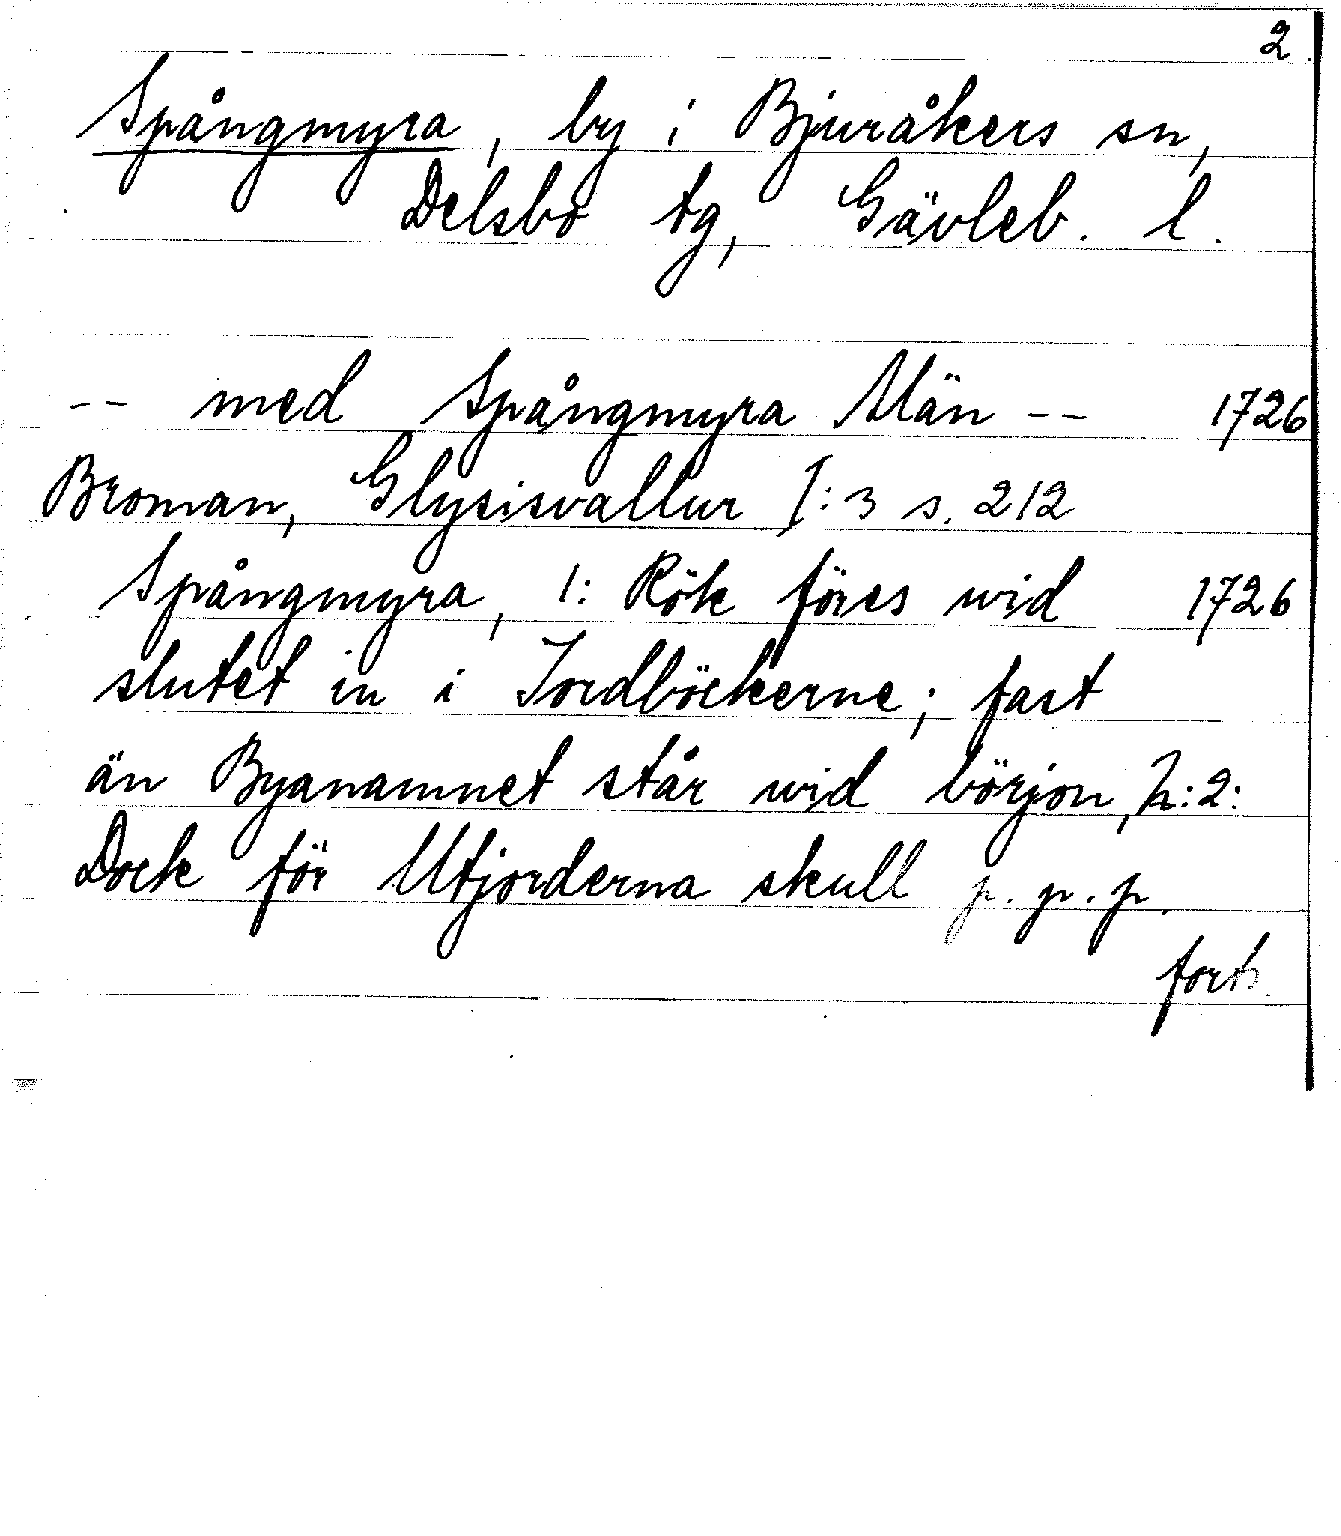 2
Spångmyra, by i Bjuråkers sn,
Delsbo tg, Gävleb. l.
-- med Spångmyra Män -- 1726
Broman, Glysisvallur I:3 s. 212
Spångmyra, 1: Rök föres wid 1726
slutet in i Jordböckerne; fast
än Byanamnet står wid börjon, h:2:
Dock för Utjorderna skull p. p. p.
forts.